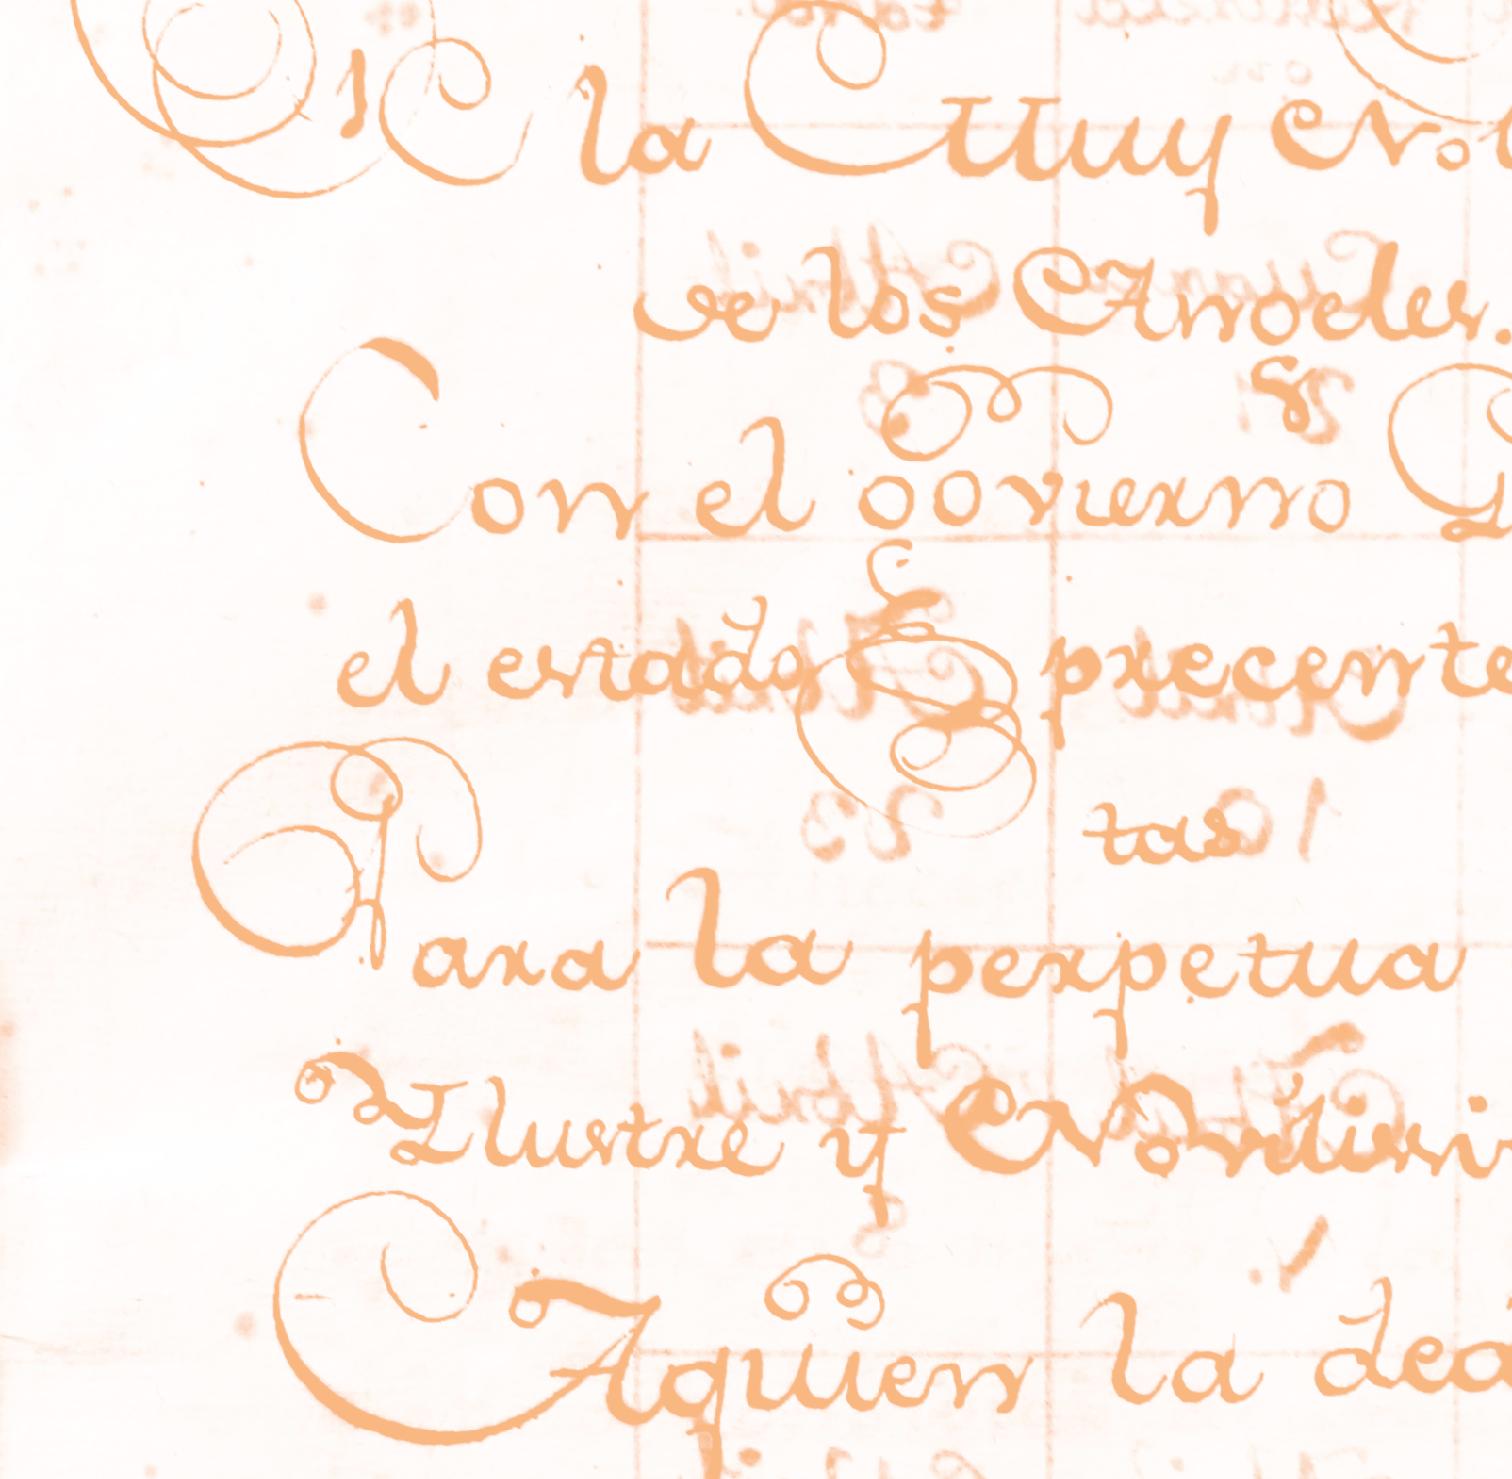 la Muy No
de los Angeles.
Con el govierno G
el estado precente
tas
Para la perpetua
Ilustre y Nobilisi
Aquien la dea